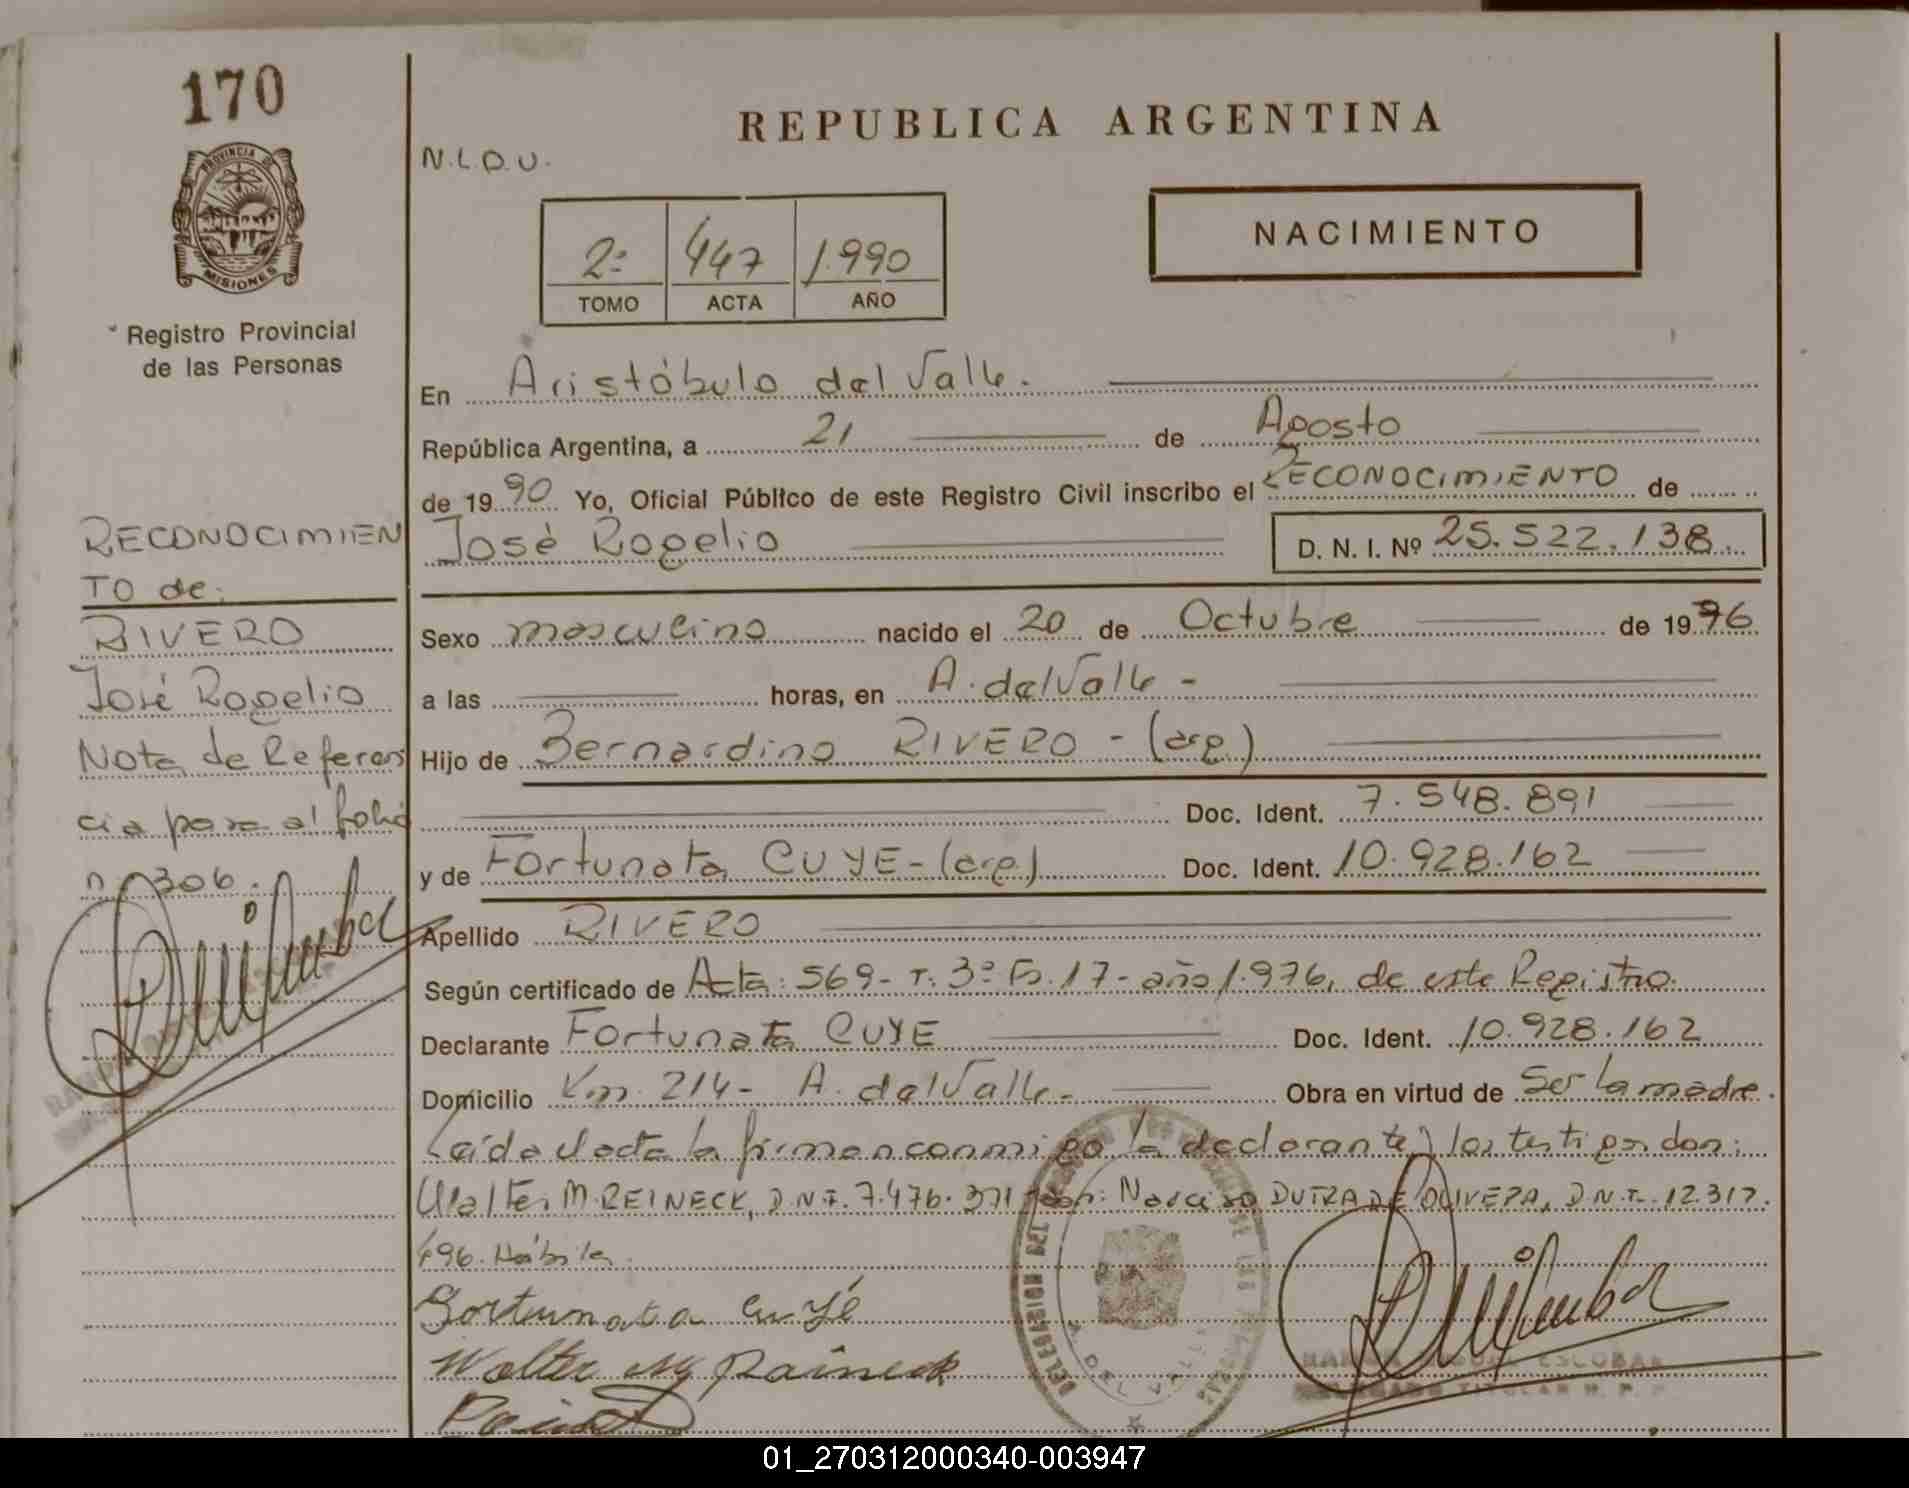 170
PROVINCIA DE
MISIONES
Registro Provincial
de las Personas
REPUBLICA ARGENTINA
N.L.D.U.
2º 447 1.990
TOMO ACTA AÑO
NACIMIENTO
En Aristóbulo del Valle.
República Argentina, a 21 de Agosto
de 1990 Yo, Oficial Público de este Registro Civil inscribo el RECONOCIMIENTO de
José Rogelio D. N. I. Nº 25.522.138.
Sexo masculino nacido el 20 de Octubre de 1976
a las horas, en A. del Valle -
Hijo de Bernardino RIVERO - (arg.)
Doc. Ident. 7.548.891
y de Fortunata CUYE - (arg.) Doc. Ident. 10.928.162
Apellido RIVERO
Según certificado de Acta: 569 - T: 3º Fº. 17 - año 1.976, de este Registro.
Declarante Fortunata CUYE Doc. Ident. 10.928.162
Domicilio Km. 214 - A. del Valle - Obra en virtud de Ser la madre.
Leída el acta la firman conmigo la declarante y los testigos don:
Walter M. REINECK, D.N.I. 7.476.371 y don: Narciso DUTRA DE OLIVERA, D.N.I. 12.317.
496. Hábiles.
Fortunata Cuyé
Walter M Raineck
RECONOCIMIEN
TO de:
RIVERO
José Rogelio
Nota de Referen
cia para al folio
nº 306.
A. DEL VALLE
ESCOBAR
TITULAR R. P. P.
01_270312000340-003947